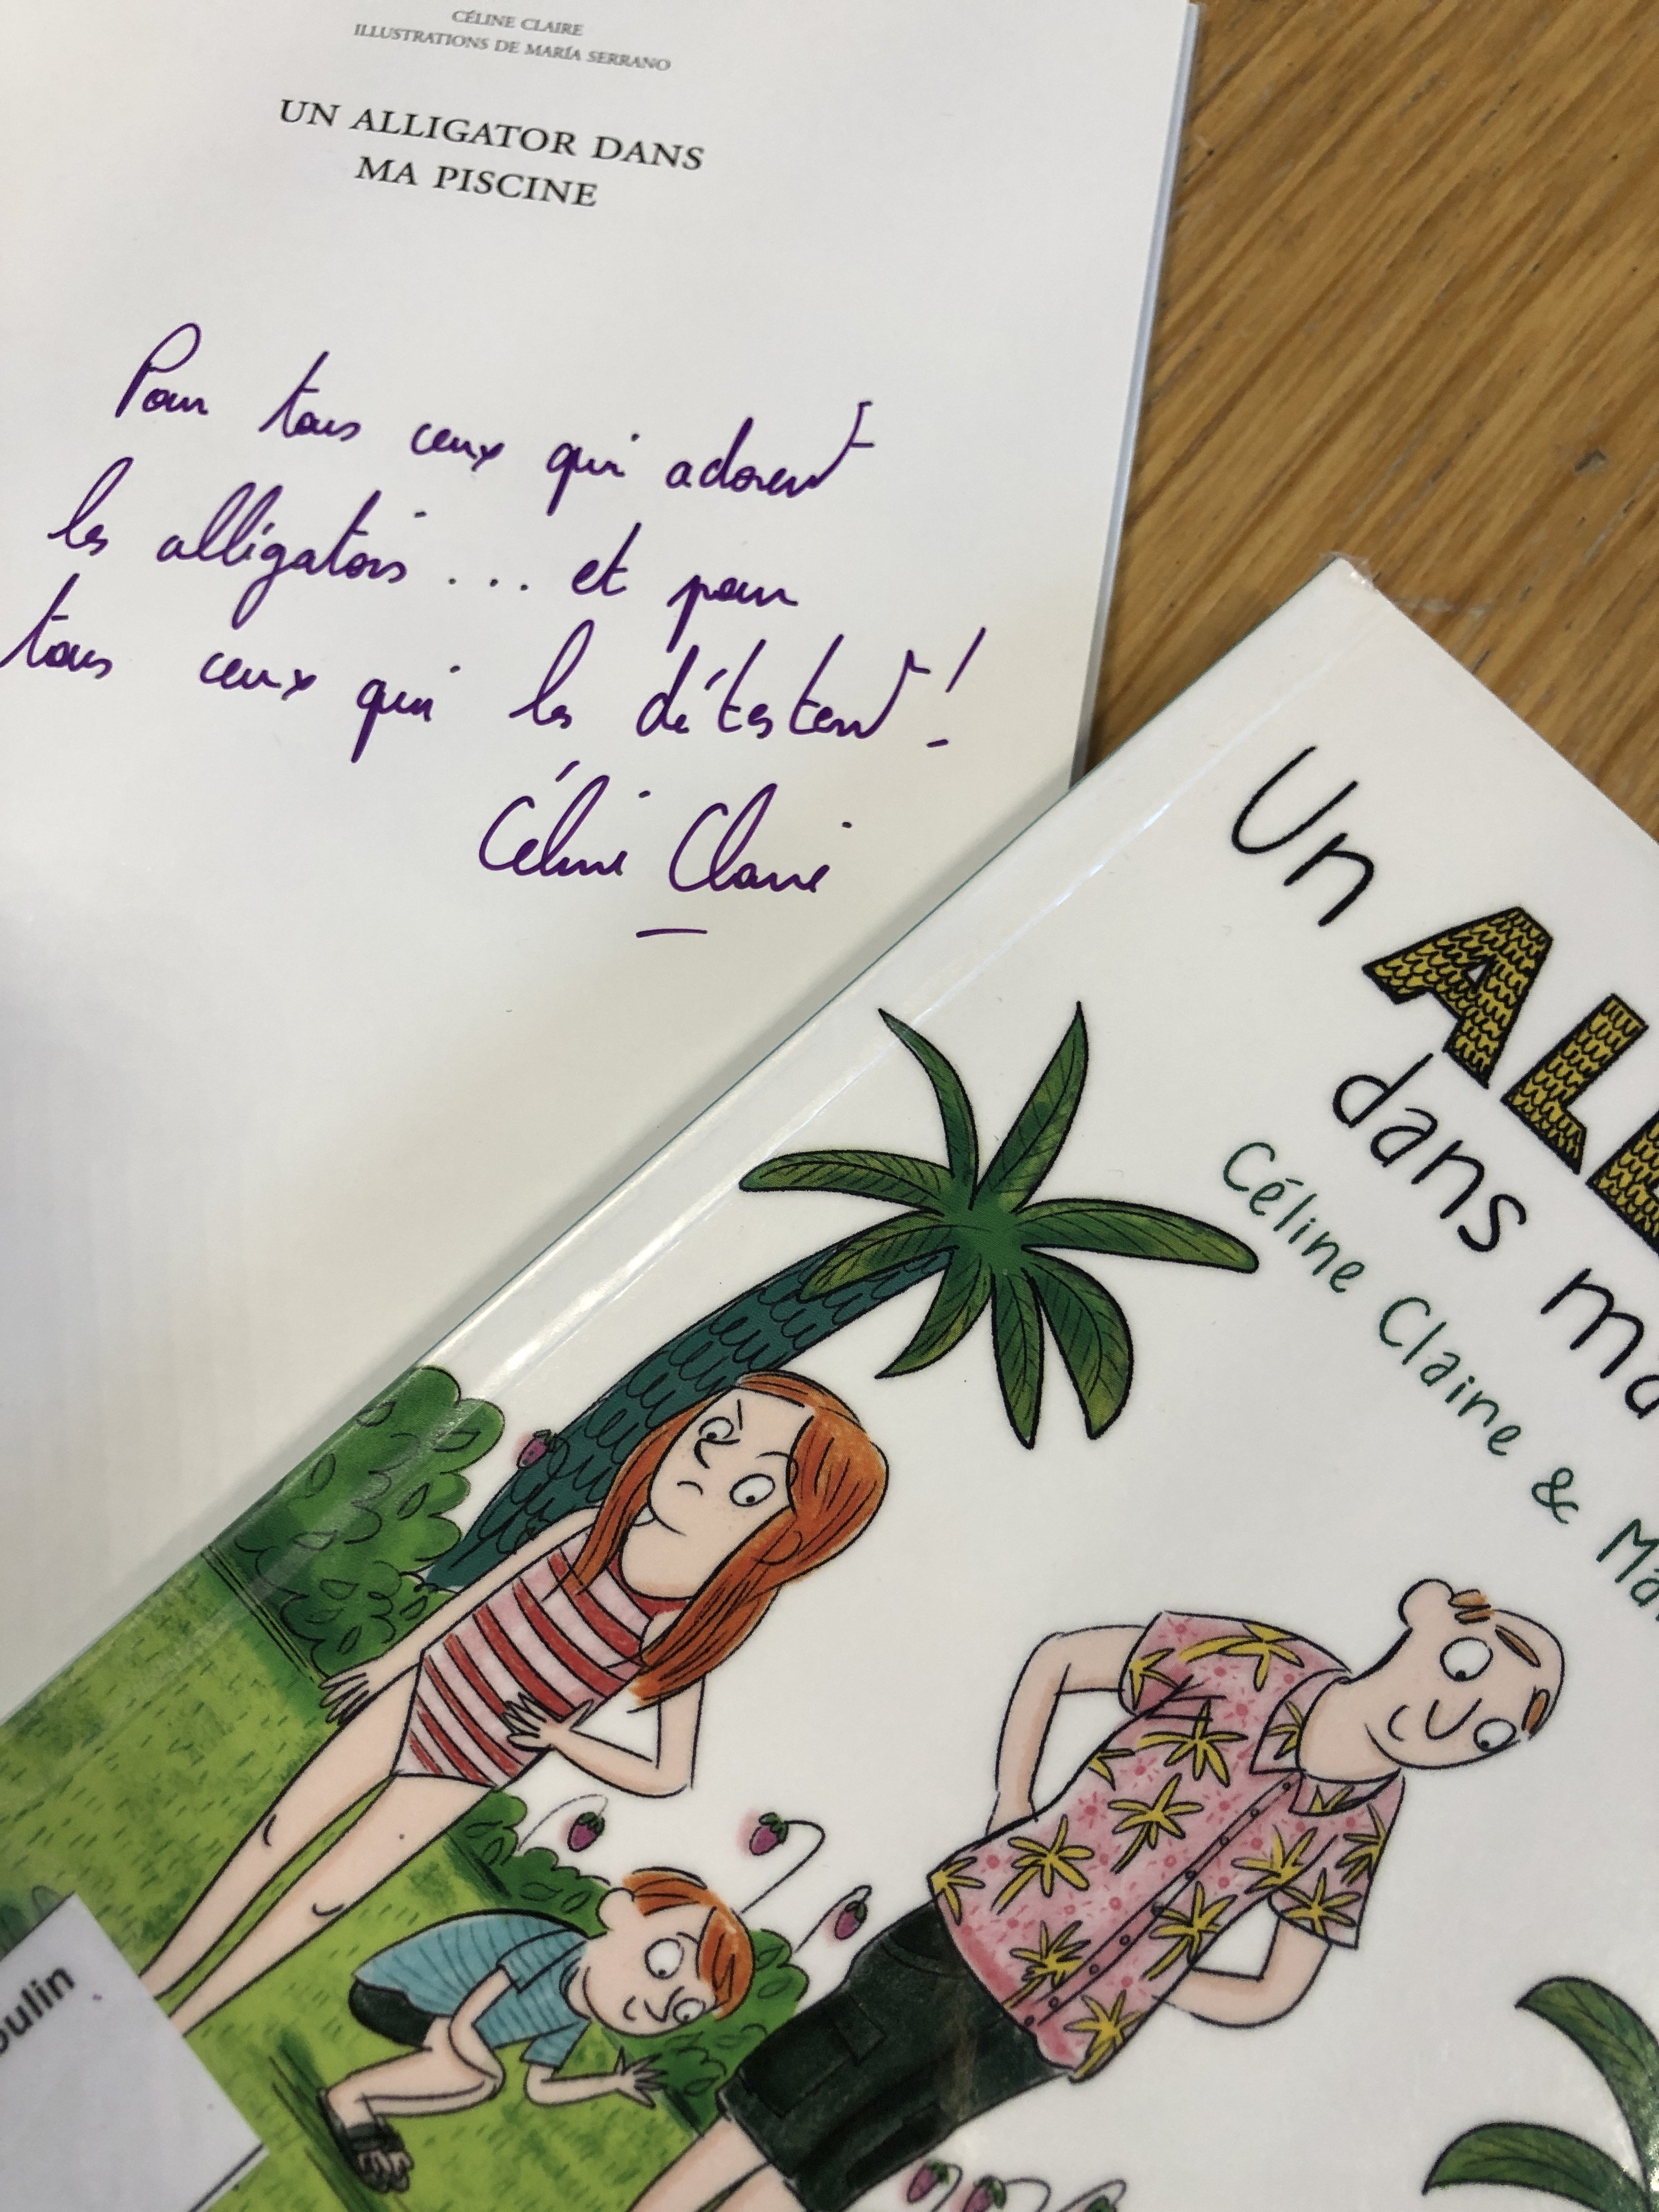 CÉLINE CLAIRE
ILLUSTRATIONS DE MARÍA SERRANO
UN ALLIGATOR DANS
MA PISCINE
Pour tous ceux qui adorent
les alligators ... et pour
tous ceux qui les détestent !
Céline Claire
Un
ALL
dans ma
Céline Claire & Mar
oulin